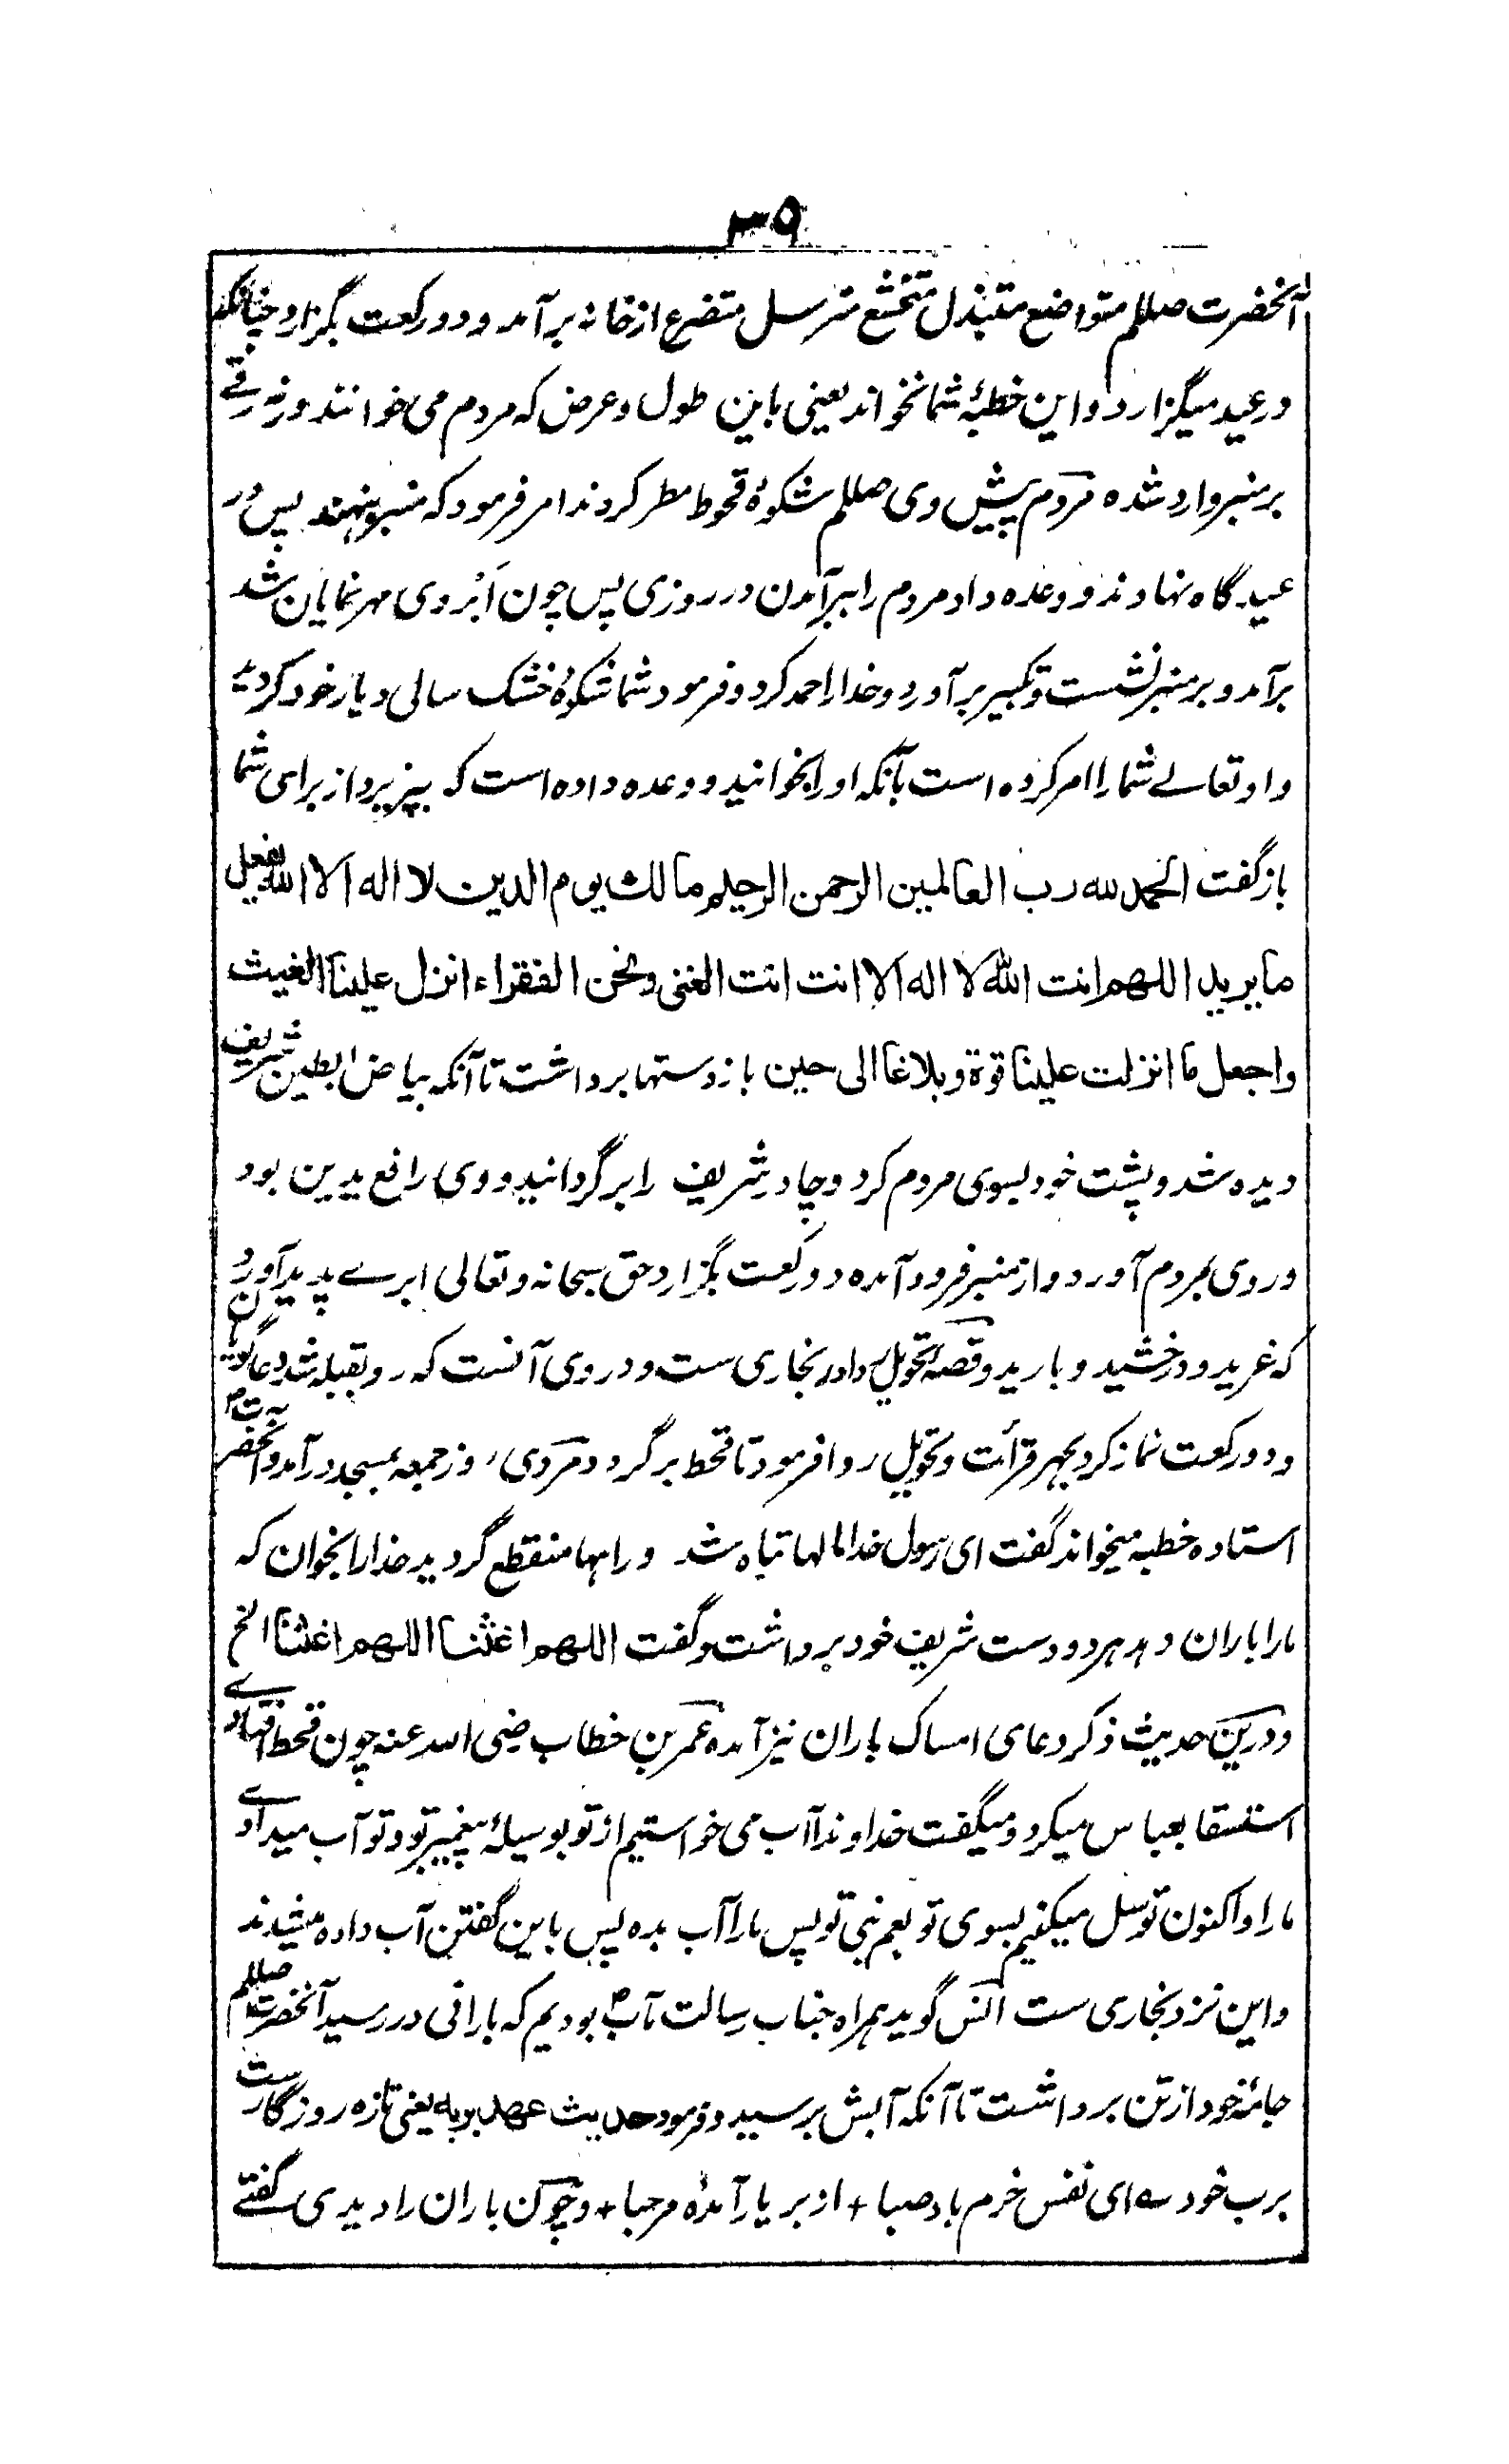 ۳۹
آنحضرت صللم متواضع متبذل متخشع مترسل متضرع از خانه برآمد و دو رکعت بگزارد چنانکه
در عید میگزارد و این خطبۂ شما نخواند یعنی باین طول و عرض که مردم می خوانند و ترقے
بر منبر وارد شده مردم پیش وی صللم شکوۂ قحوط مطر کردند امر فرمود که منبر بنهند پس در
عیدگاه نهادند و وعده داد مردم را ببرآمدن در روزی پس چون ابروی مهر نمایان شد
برآمد و بر منبر نشست و تکبیر برآورد و خدا را حمد کرد و فرمود شما شکوۂ خشک سالی دیار خود کردید
و او تعالے شما را امر کرده است بآنکه او را بخوانید و وعده داده است که بپزیرد از برای شما
باز گفت الحمد لله رب العالمین الرحمن الرحیم مالک یوم الدین لا اله الا الله یفعل
ما یرید اللهم انت الله لا اله الا انت انت الغنی و نحن الفقراء انزل علینا الغیث
واجعل ما انزلت علینا قوة و بلاغا الی حین باز دستها برداشت تا آنکه بیاض ابطین شریف
دیده شد و پشت خود بسوی مردم کرد و چادر شریف را برگردانید و وی رافع یدین بود
و روی بمردم آورد و از منبر فرود آمده دو رکعت بگزارد حق سبحانه و تعالی ابرے پدید آورد
که غرید و درخشید و بارید و قصۂ تحویل ردا در بخاری ست و در وی آنست که رو بقبله شد دعا گویان
و دو رکعت نماز کرد بجهر قرأت و تحویل ردا فرمود تا قحط برگردد مردی روز جمعه بمسجد درآمد و آنحضرت
استاده خطبه میخواند گفت ای رسول خدا مالها تباه شد و راهها منقطع گردید خدا را بخوان که
ما را باران دهد هر دو دست شریف خود برداشت و گفت اللهم اغثنا اللهم اغثنا الخ
و درین حدیث ذکر دعای امساک باران نیز آمده عمر بن خطاب رضی الله عنه چون قحط افتادے
استسقا بعباس میکرد و میگفت خداوندا آب می خواستیم از تو بوسیلۂ پیغمبر تو و تو آب میدادے
ما را و اکنون توسل میکنیم بسوی تو بعم نبی تو پس ما را آب بده پس باین گفتن آب داده میشدند
و این نزد بخاری ست انس گوید همراه جناب رسالت مآب بودیم که بارانی در رسید آنحضرت صللم
جامۂ خود از تن برداشت تا آنکه آبش برسید و فرمود حدیث عهد بربه یعنی تازه روزگارست
برب خود ے ای نفس خرم باد صبا + از بر یار آمدۂ مرحبا + و چون باران را دیدی گفتے